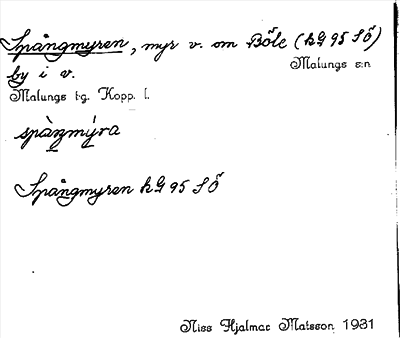 Spångmyren, myr v. om Böle (kG 95 SÖ)
by i v. Malungs s:n
Malungs tg. Kopp. l.
spàŋmýra
Spångmyren kG 95 SÖ
Niss Hjalmar Matsson 1931